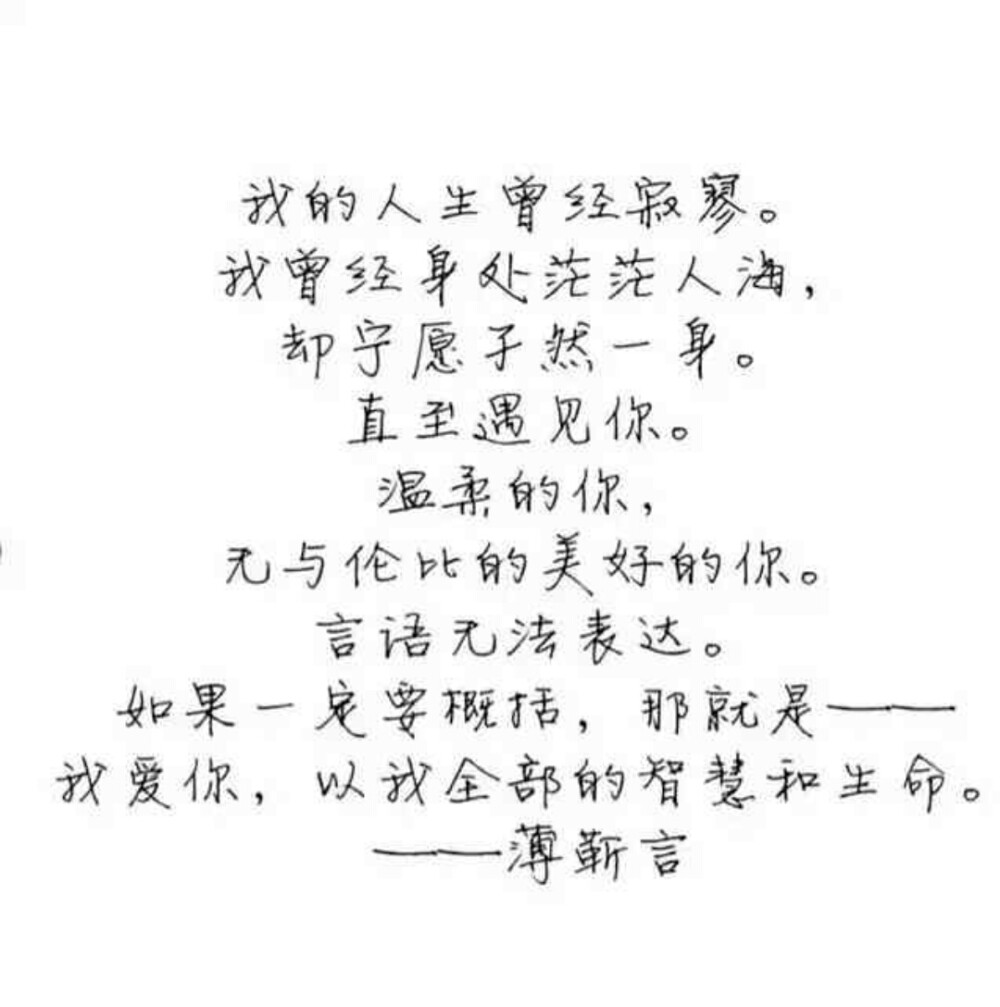 我的人生曾经寂寥。
我曾经身处茫茫人海，
却宁愿孑然一身。
直至遇见你。
温柔的你，
无与伦比的美好的你。
言语无法表达。
如果一定要概括，那就是——
我爱你，以我全部的智慧和生命。
——薄靳言